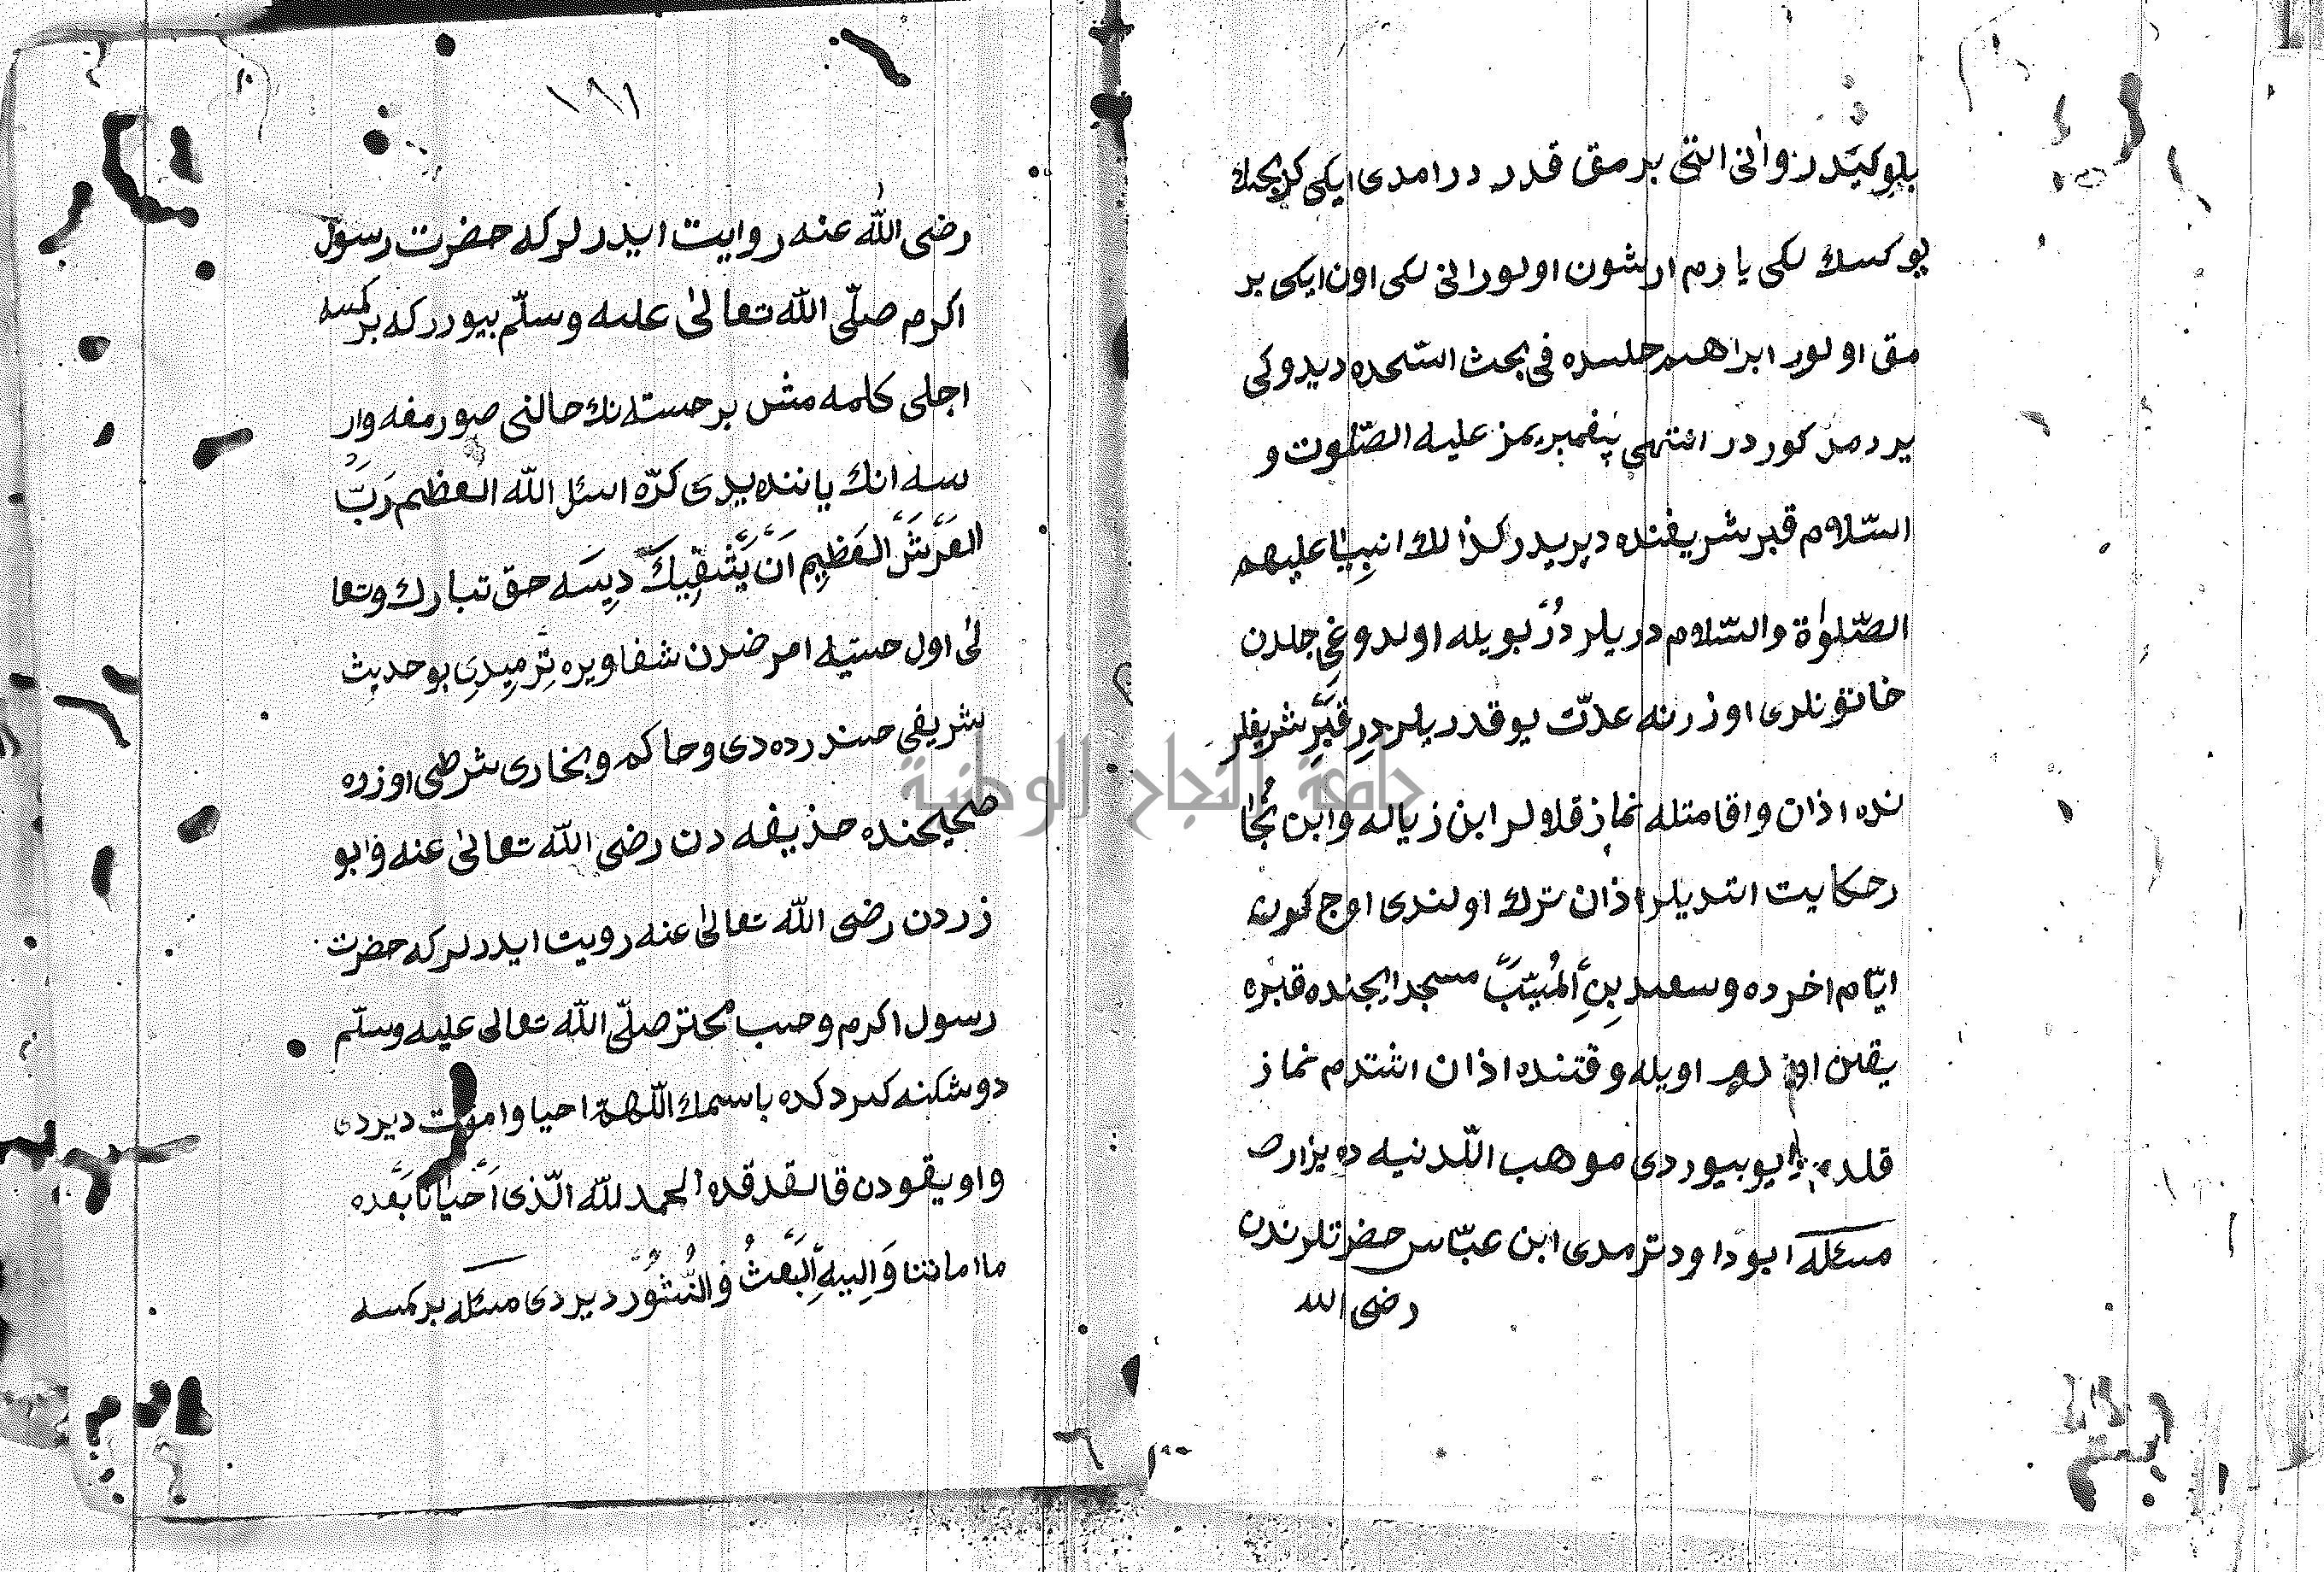 بلوكيدر زواني التي برمق قدر در امدى ايكى كريجك
يوكسك لكى يارم ارشون اولور انى لكى اون ايكى بر
مق اولور ابراهيم حلسده فى بحث استحده ديدوكى
يرد مذكوردر انتهى پيغمبريمز عليه الصّلوت و
السّلام قبر شريفنده ديريدر كذالك انبيا عليهم
الصّلوٰة والسّلام دريلر دُرّ بويله اولدوغى جلدن
خاتونلرى اوزرنه عدّت يوقدر يلردر قبر شريفلر
نده اذان واقامتله نماز قلالر ابن زباله وابن نُجا
رحكايت اتديلر اذان ترك اولندى اوج كون
ايّام اخرده وسعيد بن المُسيّب مسجد ايجنده قبره
يقين اويله وقتنده اذان اشتدم نماز
قلدم ديو بيوردى موهب اللّدنيه ده يزار ص
مسئله ابو داود ترمدى ابن عبّاس حضرتلرندن
رضى الله
١٩١
رضى اللّه عنه روايت ايدرلركه حضرت رسول
اكرم صلّى اللّه تعالىٰ عليه وسلّم بيورركه بر كمسه
اجلى كلمه مش بر حسته نك حالنى صورمغه وار
سه انك ياننده يدى كرّه اسئل اللّه العظيم رَبُّ
العَرّشَ العَظِيم اَنّ يَّشفِيكَ ديسه حق تبارك وتعا
لىٰ اول حستيه امرضدن شفا ويره ترميدى بوحديث
شريفى حسندر ده دى وحاكم وبخارى شرطى اوزره
صحيحنده حذيفه دن رضى اللّه تعالىٰ عنه وابو
زردن رضى اللّه تعالىٰ عنه رويت ايدرلركه حضرت
رسول اكرم وحبيب محترم صلّى اللّه تعالى عليه وسلّم
دوشكنه كيردكده باسمك اللّهمّ احيا واموت ديردى
واويقودن قالقدقده الحمد للّه الّذى اَحيانا بَعده
ما اماتنا وَاِليهِ البَعثُ والنُّشُور ديردى مسئله بر كمسه
جامعة النجاح الوطنية